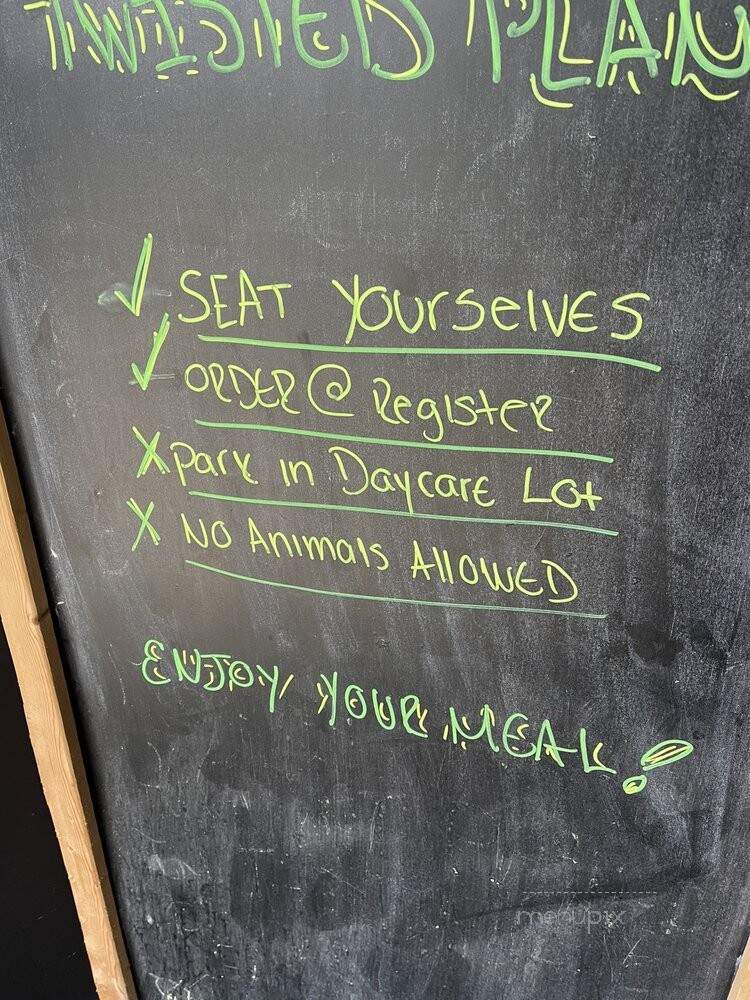 TWISTED PLAN
✓ SEAT YOURSELVES
✓ ORDER @ Register
X Park in Daycare Lot
X NO Animals AllOWED
ENJOY YOUR MEAL!
menupix